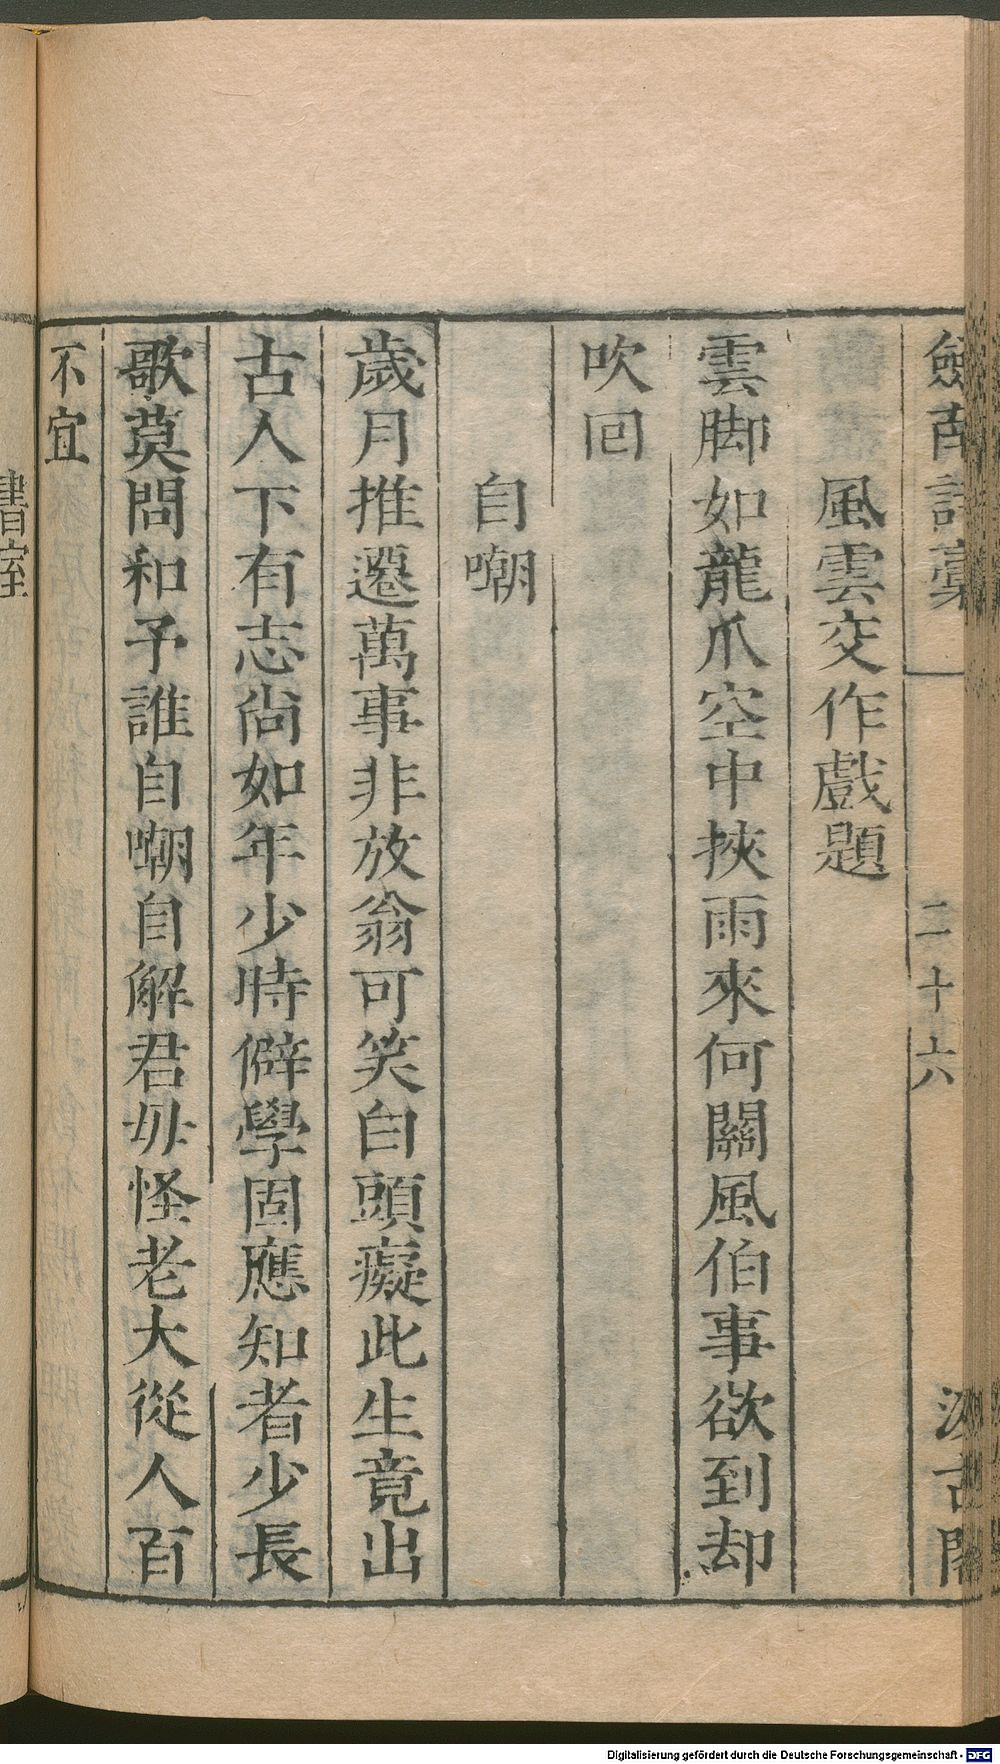 劍南詩稾
二十六
汲古閣
風雲交作戲題
雲脚如龍爪空中挾雨來何關風伯事欲到却
吹回
自嘲
歲月推遷萬事非放翁可笑白頭癡此生竟出
古人下有志尙如年少時僻學固應知者少長
歌莫問和予誰自嘲自解君毋怪老大從人百
不宜
書室
Digitalisierung gefördert durch die Deutsche Forschungsgemeinschaft - DFG